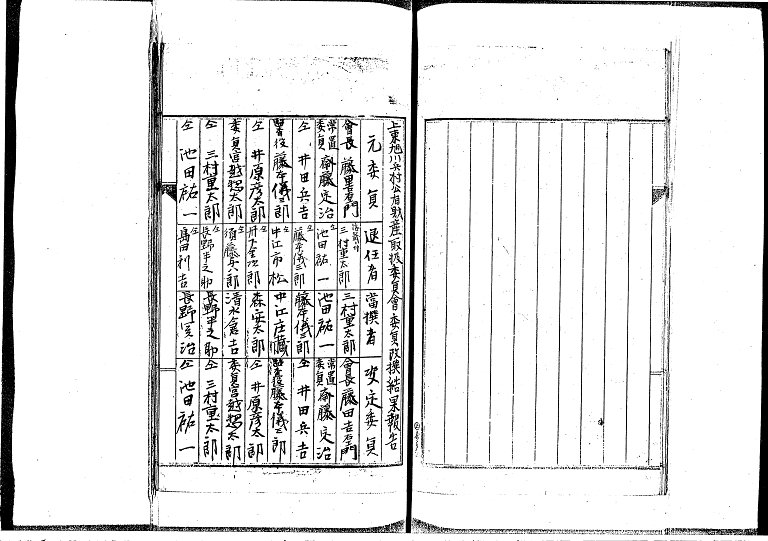 上東旭川兵村公有財産取扱委員會委員改撰結果報告
元委員 退任者 當撰者 決定委員
會長 藤里右門 三村重太郎 三村重太郎 會長 藤田吉右門
常置委員 斎藤定治 仝 池田祐一 池田祐一 常置委員 斎藤定治
仝 井田兵吉 仝 藤本儀三郎 藤本儀三郎 仝 井田兵吉
監査役 藤本儀三郎 仝 中江市松 中江庄藏 監査役 藤本儀三郎
仝 井原彦太郎 仝 井下金次郎 森安太郎 仝 井原彦太郎
委員 宮越惣太郎 仝 須藤兵郎 清水倉吉 委員 宮越惣太郎
仝 三村重太郎 仝 長野平之助 長野平之助 仝 三村重太郎
仝 池田祐一 仝 島田利吉 長野寅治 仝 池田祐一